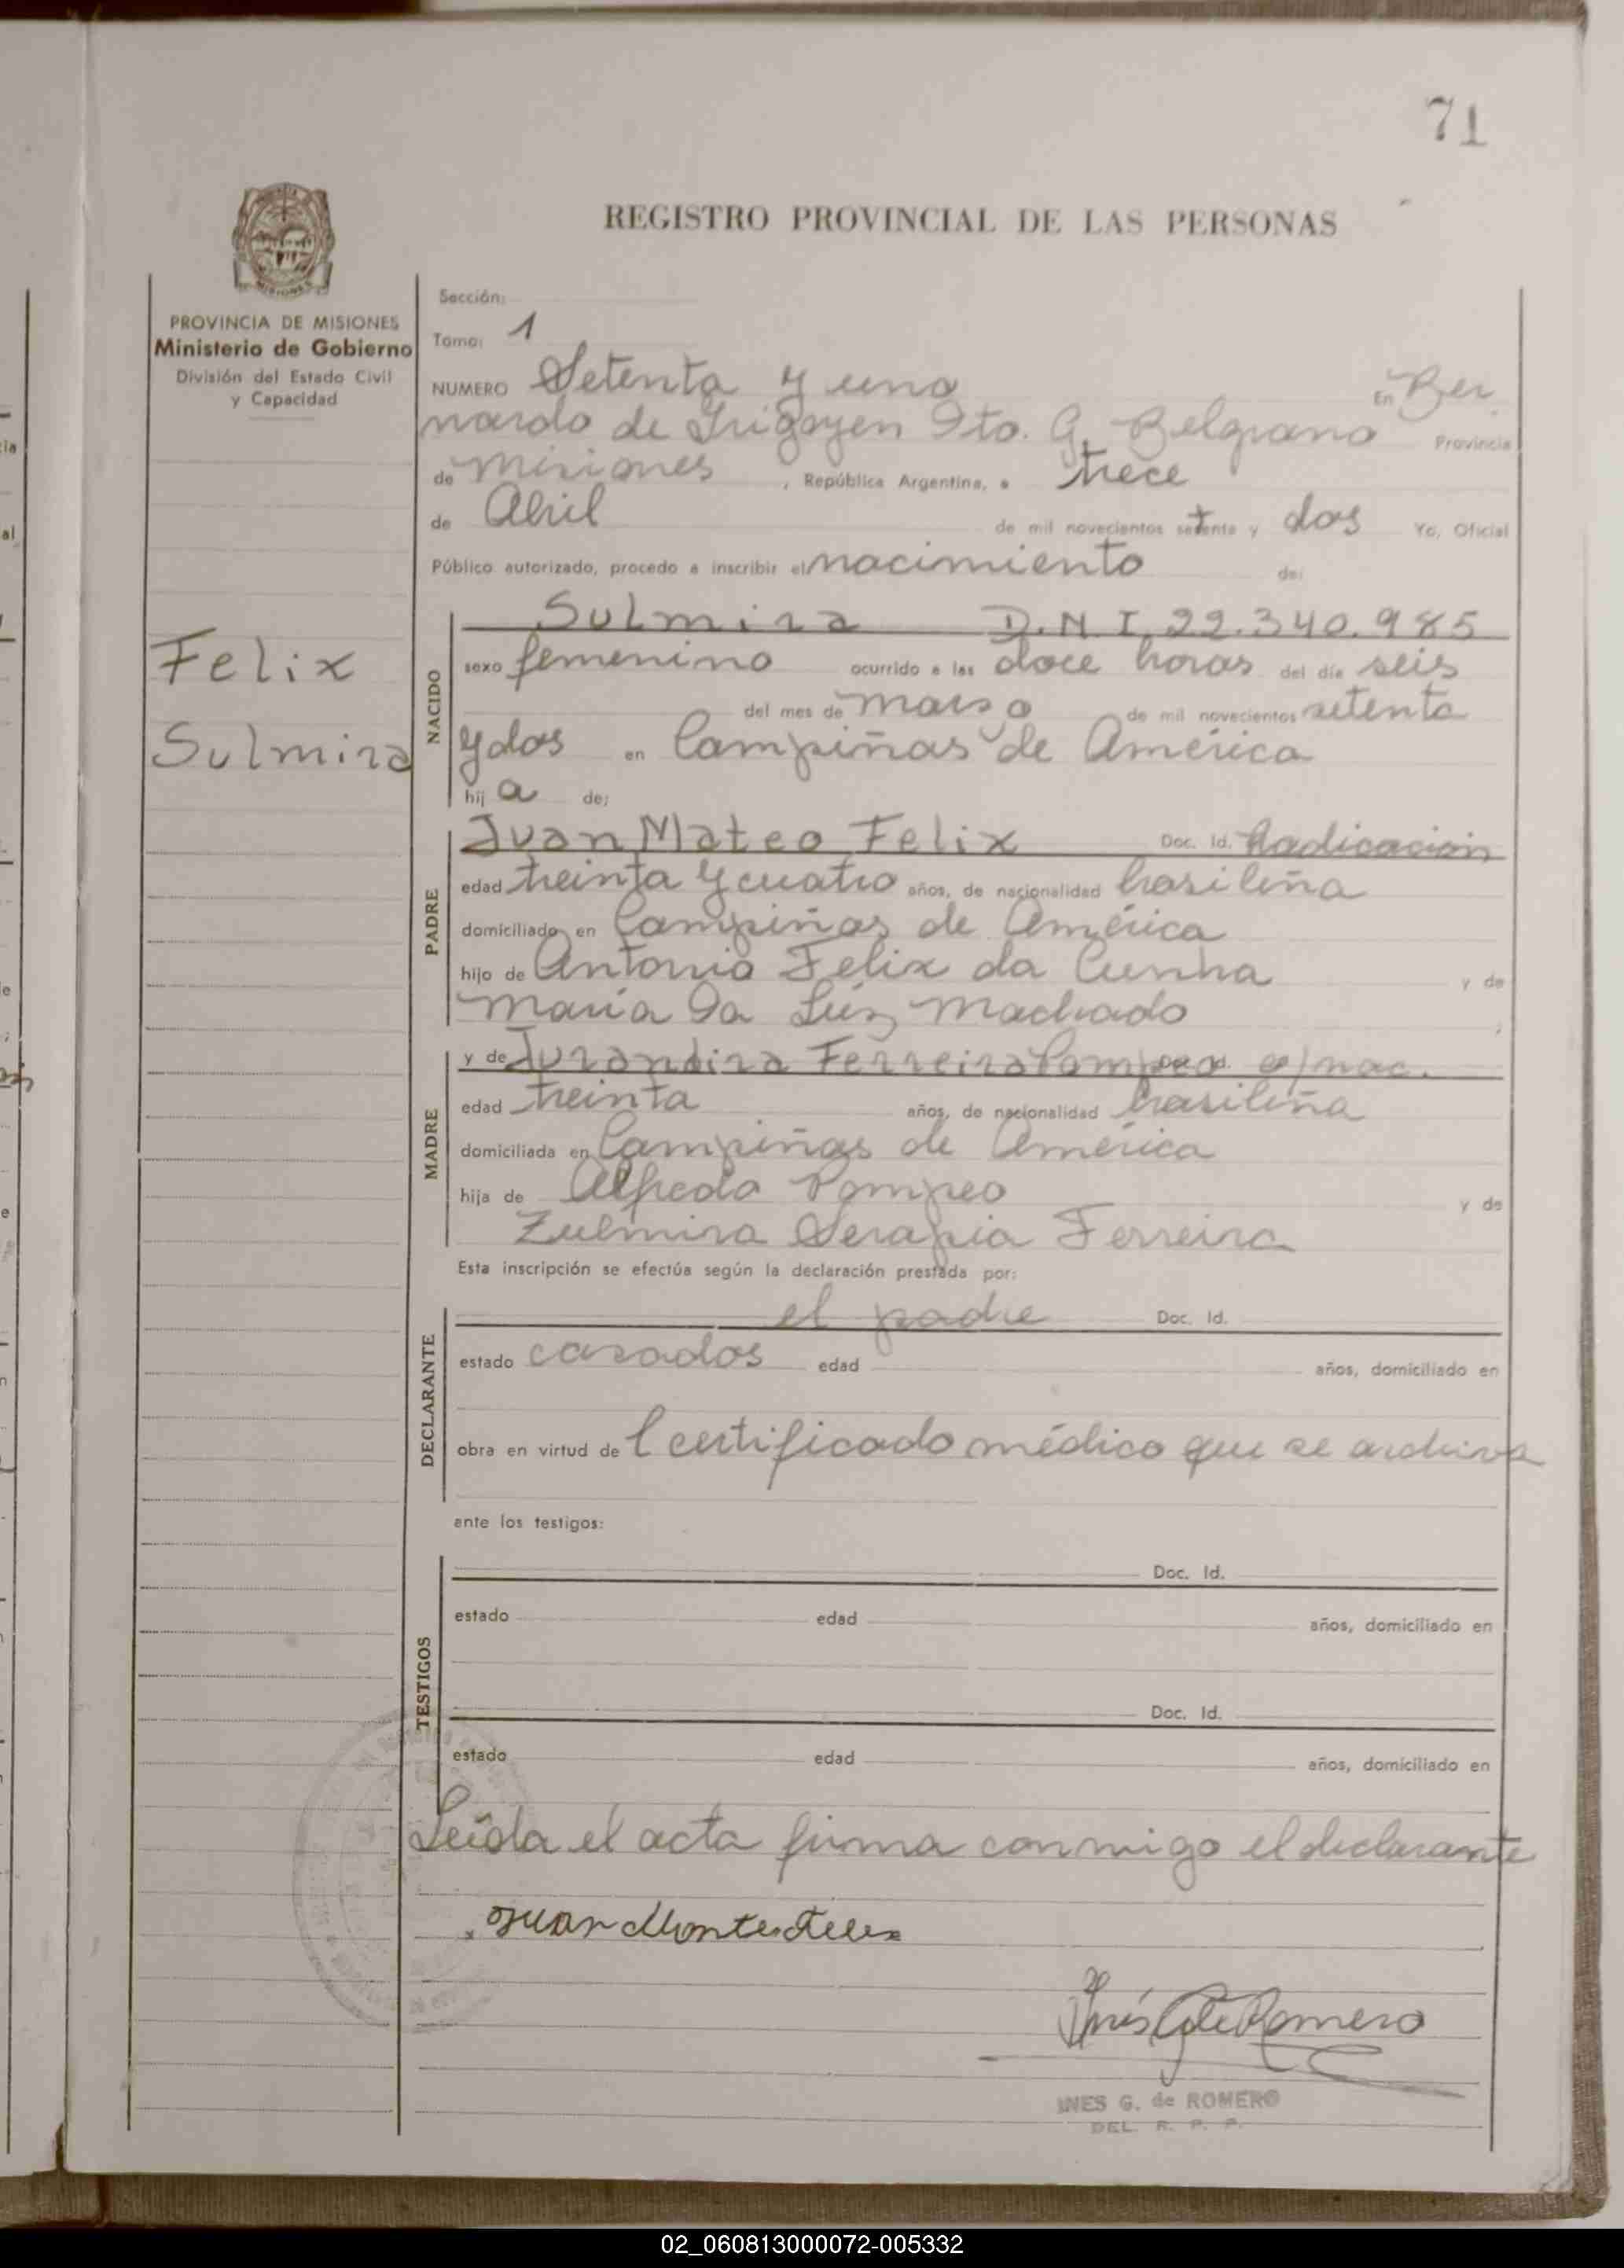 71
REGISTRO PROVINCIAL DE LAS PERSONAS
MISIONES
PROVINCIA DE MISIONES
Ministerio de Gobierno
División del Estado Civil
y Capacidad
Felix
Sulmira
Sección:
Tomo: 1
NUMERO Setenta y uno En Ber
nardo de Irigoyen Dto. G. Belgrano Provincia
de Misiones, República Argentina, a trece
de Abril de mil novecientos setenta y dos Yo, Oficial
Público autorizado, procedo a inscribir el nacimiento de:
NACIDO
Sulmira D.N.I. 22.340.985
sexo femenino ocurrido a las doce horas del día seis
del mes de marzo de mil novecientos setenta
y dos en Campiñas de América
hij a de:
PADRE
Juan Mateo Felix Doc. Id. Radicación
edad treinta y cuatro años, de nacionalidad brasileña
domiciliado en Campiñas de América
hijo de Antonio Felix da Cunha y de
María Da Luz Machado ;
MADRE
y de Jurandira Ferreira Pompeo c/nac.
edad treinta años, de nacionalidad brasileña
domiciliada en Campiñas de América
hija de Alfredo Pompeo y de
Zulmira Serapia Ferreira
Esta inscripción se efectúa según la declaración prestada por:
DECLARANTE
el padre Doc. Id.
estado casados edad años, domiciliado en
obra en virtud de l certificado médico que se archiva
ante los testigos:
TESTIGOS
Doc. Id.
estado edad años, domiciliado en
Doc. Id.
estado edad años, domiciliado en
Leída el acta firma conmigo el declarante
Juan Mateo Felix
Inés G de Romero
INES G. de ROMERO
DEL. R. P. P.
02_060813000072-005332